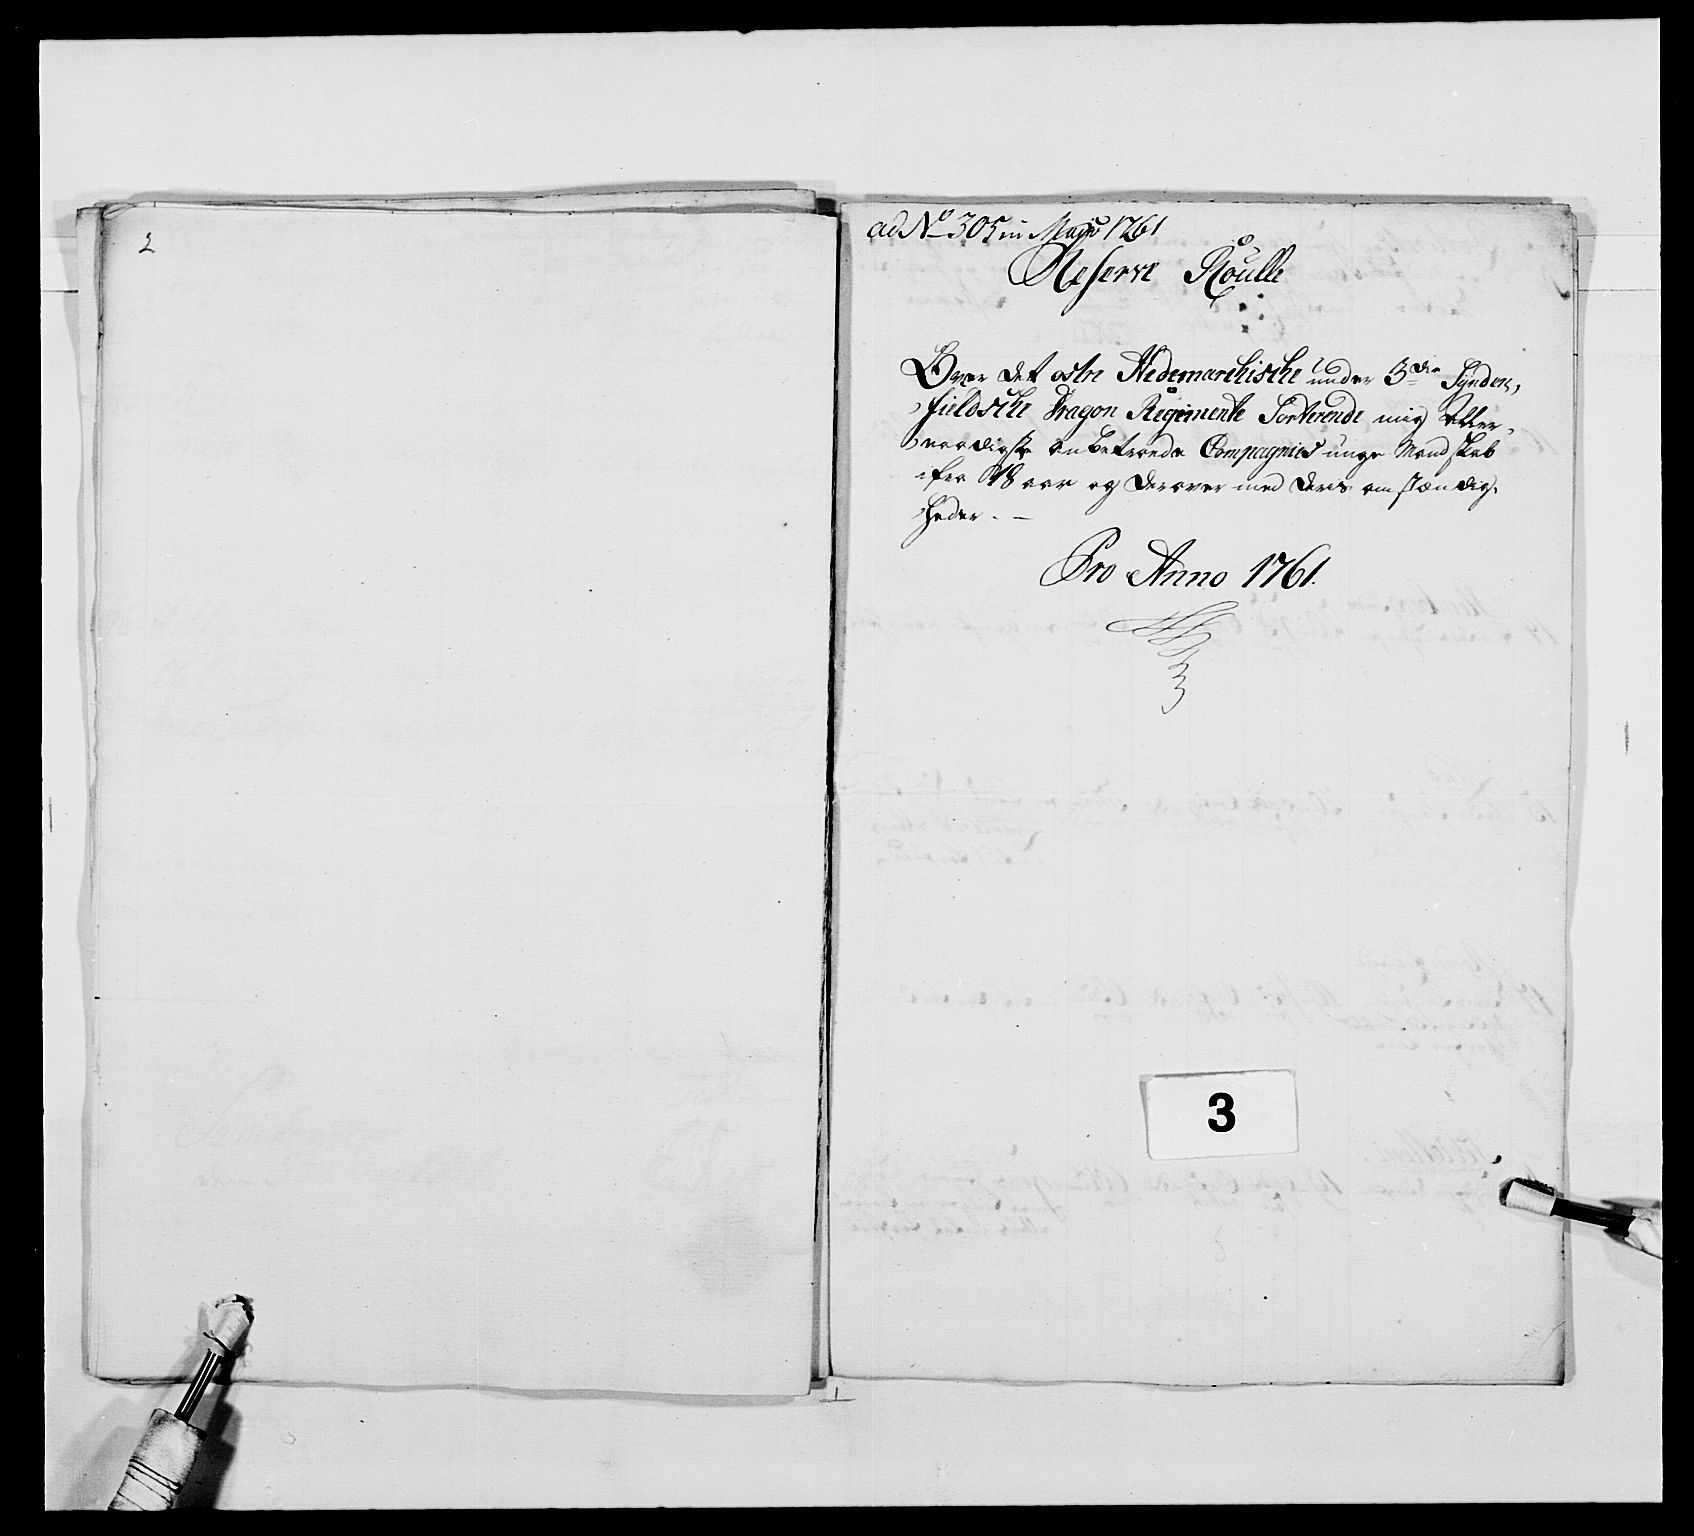 2
ad No 305 in Majo 1761
Reserve Roulle
Over det østre Hedemarchische under 3die Synden,
fieldsche Dragon Regimente Sorterende mig Aller,
naadigst anbetroede Compagnies unge Mandskab
ifra 18 aar og derover med deres omstændig,
heder. —
Pro Anno 1761.
3